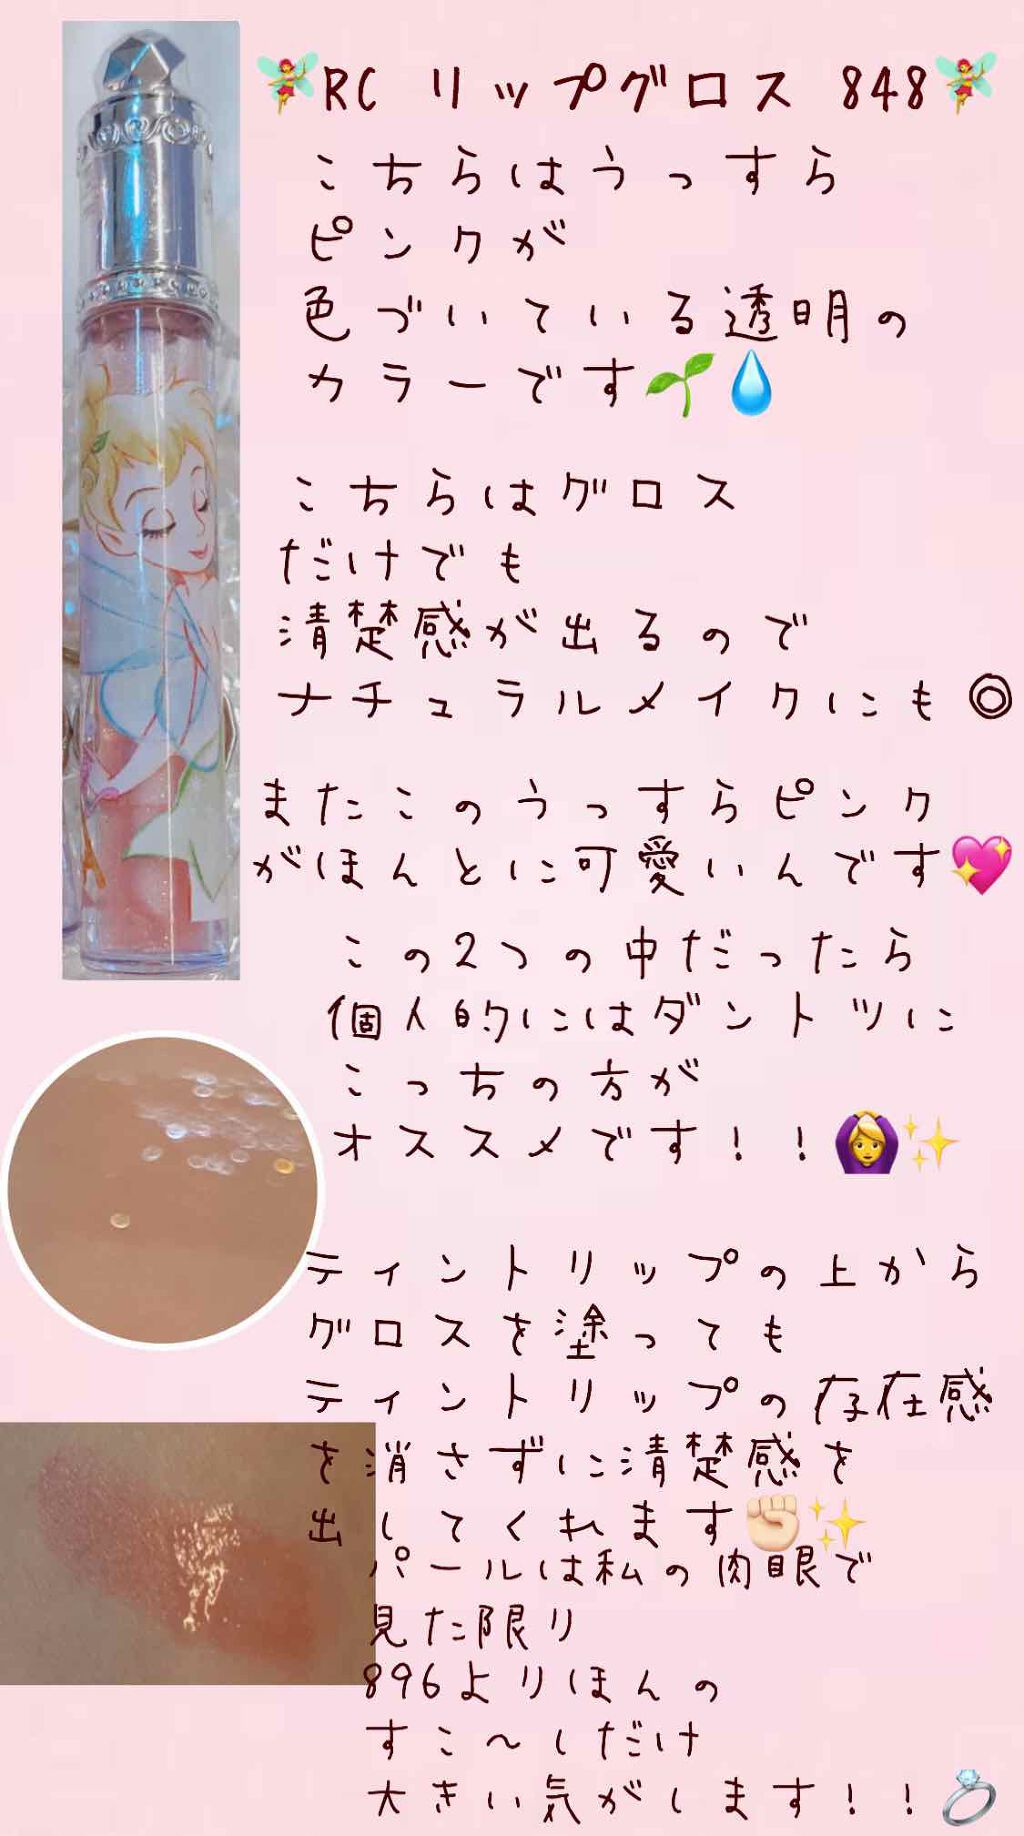 🧚RC リップグロス 848🧚
こちらはうっすら
ピンクが
色づいている透明の
カラーです🌱💧
こちらはグロス
だけでも
清楚感が出るので
ナチュラルメイクにも◎
またこのうっすらピンク
がほんとに可愛いんです💖
この2つの中だったら
個人的にはダントツに
こっちの方が
オススメです！！🙆✨
ティントリップの上から
グロスを塗っても
ティントリップの存在感
を消さずに清楚感を
出してくれます✊🏻✨
パールは私の肉眼で
見た限り
896よりほんの
すこ〜しだけ
大きい気がします！！💍